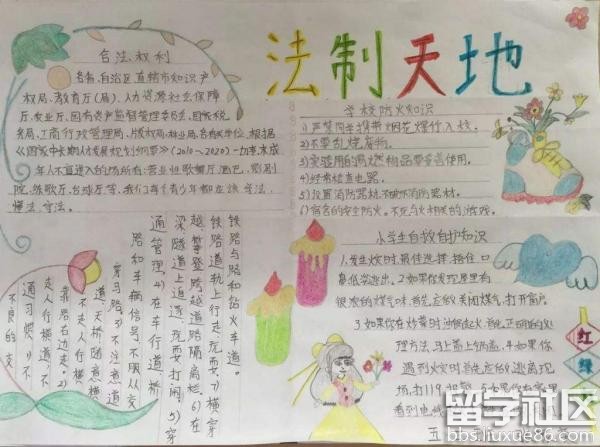 法制天地
合法权利
各省、自治区直辖市知识产
权局、教育厅(局)、人力资源社会保障
厅、农业厅、国有资产监督管理委员会、国家税
务局、工商行政管理局、版权局、林业局、各有关单位,根据
《国家中长期人才发展规划纲要》(2010~2020)
年人不宜进入的场所有:营业性歌舞厅、酒吧、影剧
院、练歌厅、台球厅等,我们每个青少年都应该学法,
懂法,守法。
学校防火知识
1)严禁同学携带烟花爆竹入校。
2)不要乱烧废物。
3)实验用的易燃物品要妥善使用。
4)经常检查电器。
5)设置消防器材,不破坏消防器材。
6)宿舍的安全防火。不玩与火相关的游戏。
小学生自救自护知识
1.发生火灾时,最佳选择:捂住口
鼻低姿逃出。2如果你发现屋里有
很浓的煤气味,首先应做关闭煤气,打开窗户
3如果你在炒菜时油锅起火,首先正确的处
理方法,马上盖上锅盖。4如果你
遇到火灾时首先应做逃离现
场,打119报警。5如果你在家里
看到电线
铁路与路和钻火车道。
铁路道轨上行走玩耍。7)横穿
越攀登跨越道路隔离栏。6)在
梁隧道上追逐、玩耍、打闹。5)穿
通管理。4)在车行道、桥
路和车辆信号不服从交
穿马路。3)不注意道
道天桥随意横
不走人行横
靠路右边走。2)
走人行横道,不
通习惯:1)不
不良的交
红
绿
五
留学社区
bbs.liuxue86.com